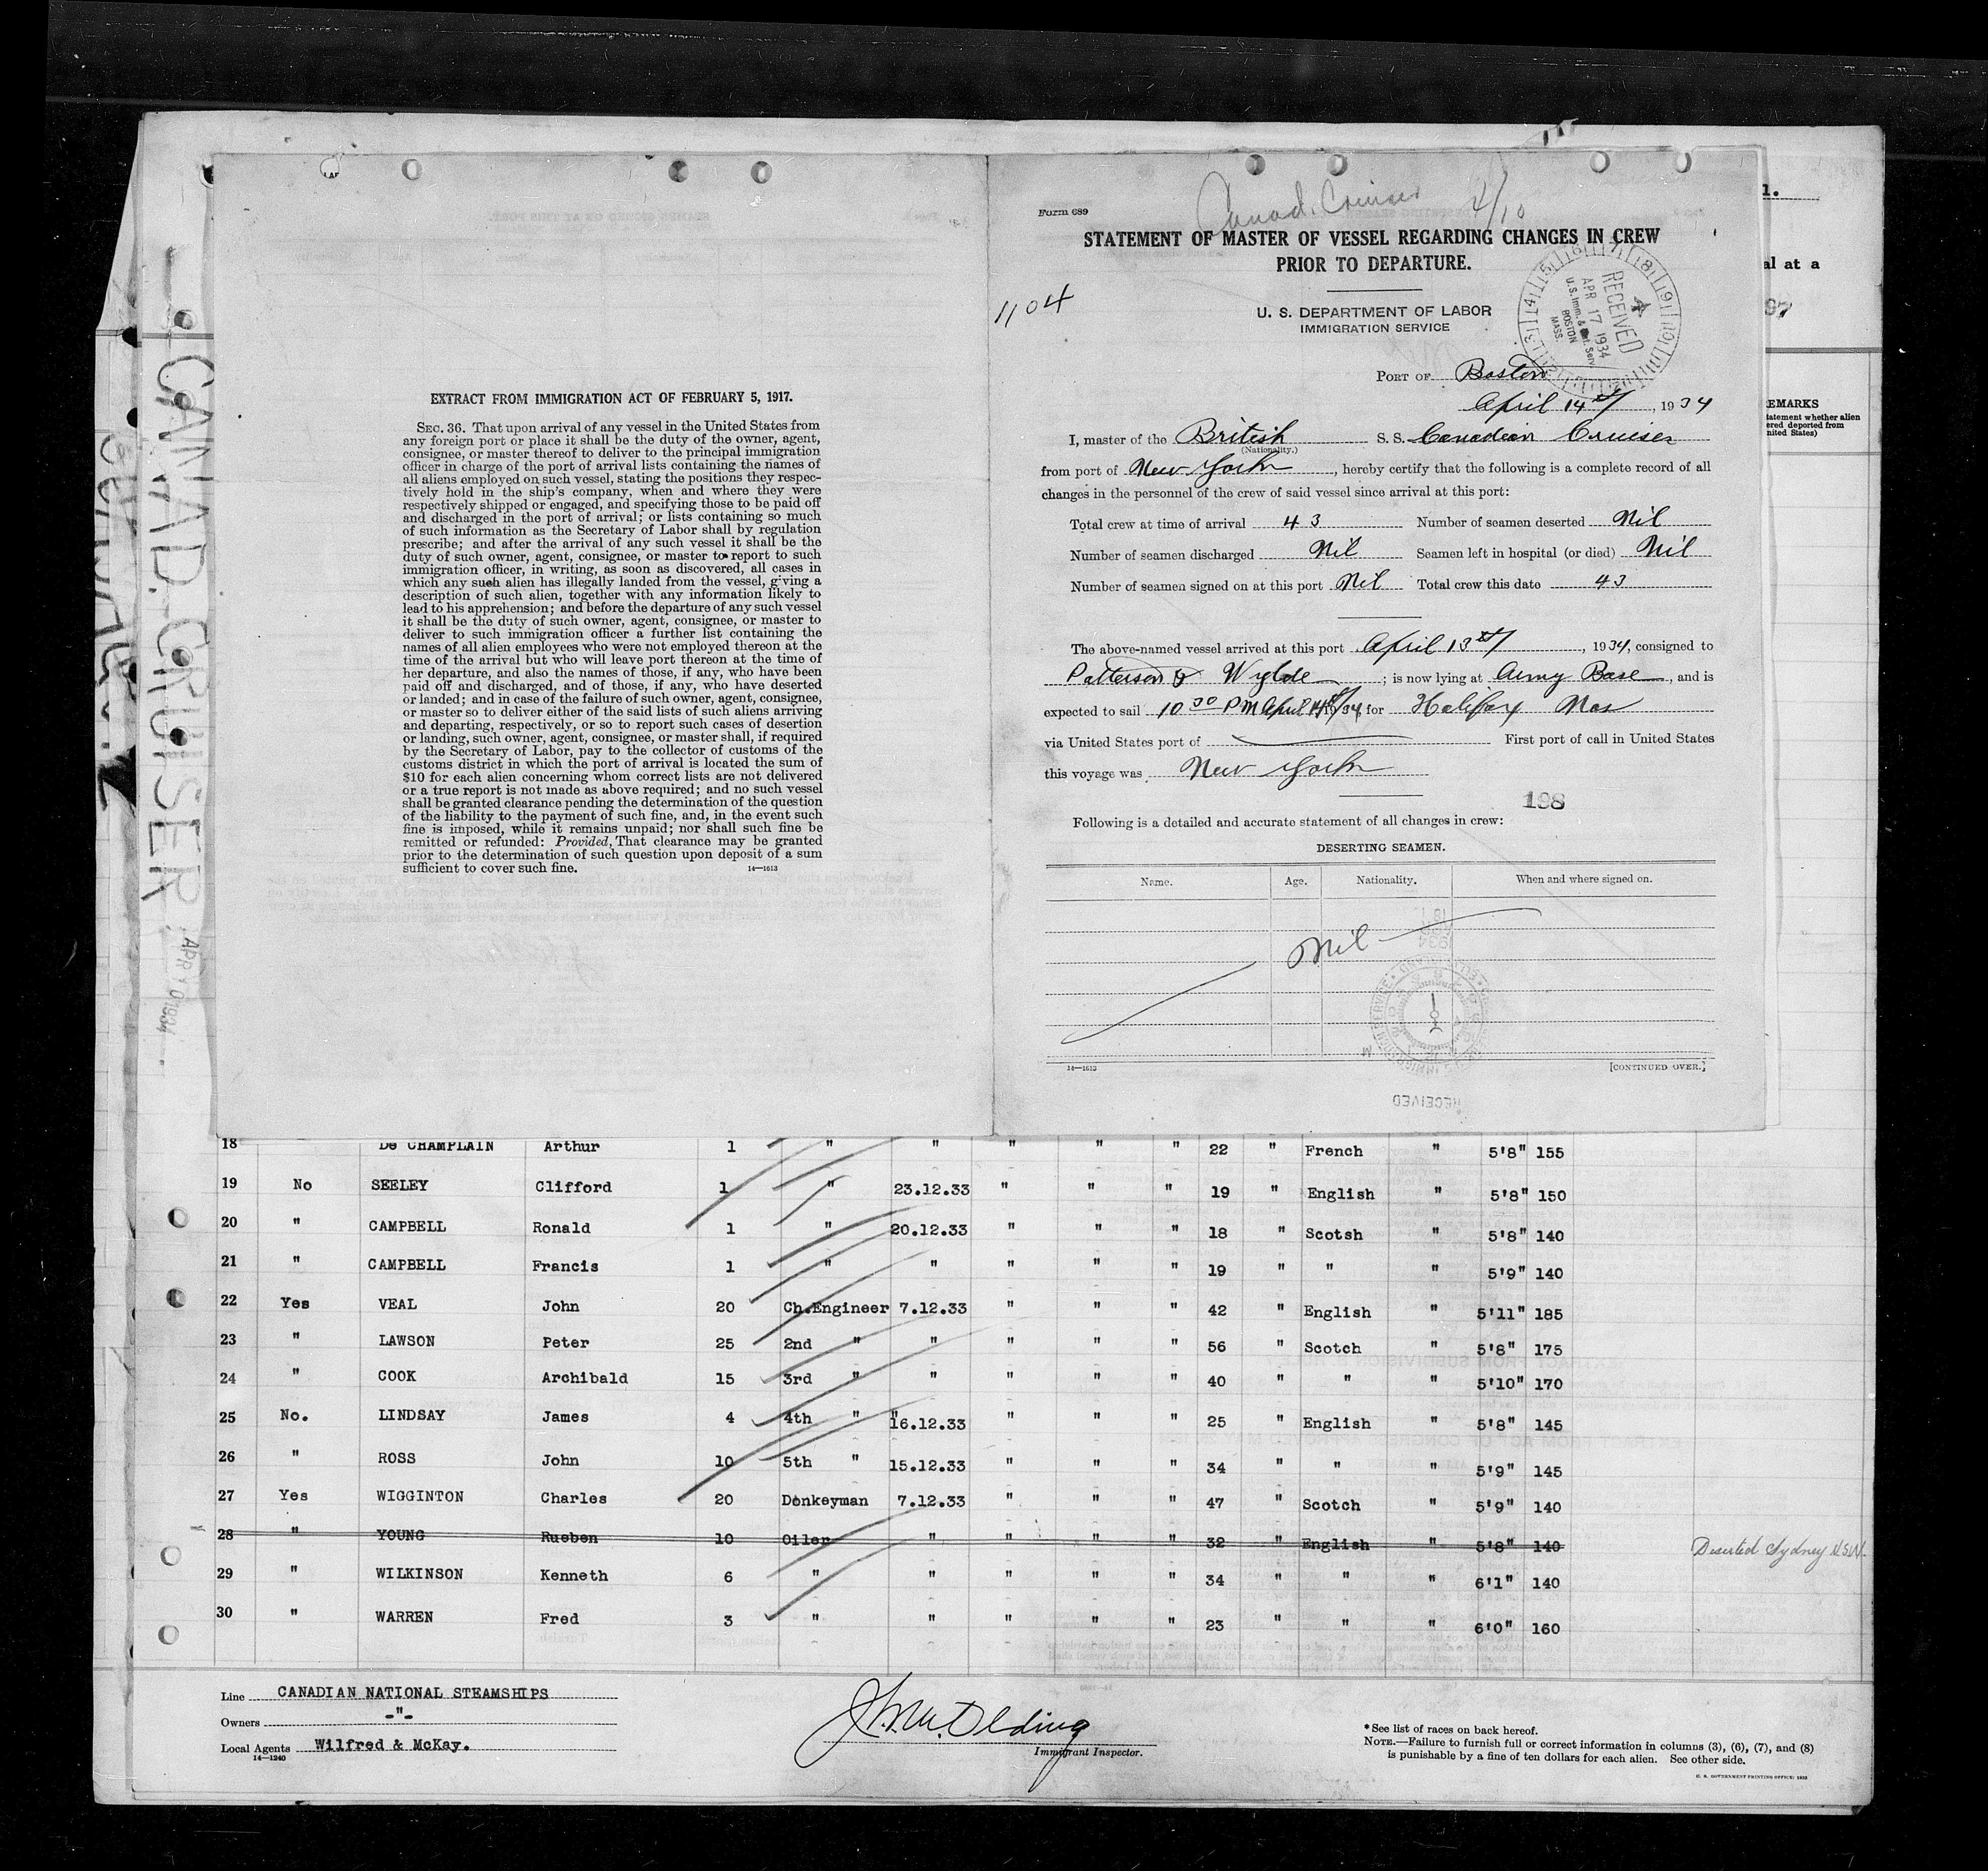 CANAD. CRUISER
APR 10 1934
EXTRACT FROM IMMIGRATION ACT OF FEBRUARY 5, 1917.
SEC. 36. That upon arrival of any vessel in the United States from
any foreign port or place it shall be the duty of the owner, agent,
consignee, or master thereof to deliver to the principal immigration
officer in charge of the port of arrival lists containing the names of
all aliens employed on such vessel, stating the positions they respec-
tively hold in the ship's company, when and where they were
respectively shipped or engaged, and specifying those to be paid off
and discharged in the port of arrival; or lists containing so much
of such information as the Secretary of Labor shall by regulation
prescribe; and after the arrival of any such vessel it shall be the
duty of such owner, agent, consignee, or master to report to such
immigration officer, in writing, as soon as discovered, all cases in
which any such alien has illegally landed from the vessel, giving a
description of such alien, together with any information likely to
lead to his apprehension; and before the departure of any such vessel
it shall be the duty of such owner, agent, consignee, or master to
deliver to such immigration officer a further list containing the
names of all alien employees who were not employed thereon at the
time of the arrival but who will leave port thereon at the time of
her departure, and also the names of those, if any, who have been
paid off and discharged, and of those, if any, who have deserted
or landed; and in case of the failure of such owner, agent, consignee,
or master so to deliver either of the said lists of such aliens arriving
and departing, respectively, or so to report such cases of desertion
or landing, such owner, agent, consignee, or master shall, if required
by the Secretary of Labor, pay to the collector of customs of the
customs district in which the port of arrival is located the sum of
$10 for each alien concerning whom correct lists are not delivered
or a true report is not made as above required; and no such vessel
shall be granted clearance pending the determination of the question
of the liability to the payment of such fine, and, in the event such
fine is imposed, while it remains unpaid; nor shall such fine be
remitted or refunded: Provided, That clearance may be granted
prior to the determination of such question upon deposit of a sum
sufficient to cover such fine.
14—1613
Canad. Cruiser 4/10
Form 689
STATEMENT OF MASTER OF VESSEL REGARDING CHANGES IN CREW
PRIOR TO DEPARTURE.
1104
U. S. DEPARTMENT OF LABOR
IMMIGRATION SERVICE
RECEIVED
APR 17 1934
U.S. Imm. & Nat. Serv.
BOSTON
MASS.
PORT OF Boston
April 14th, 1934
I, master of the British S. S. Canadian Cruiser
(Nationality.)
from port of New York, hereby certify that the following is a complete record of all
changes in the personnel of the crew of said vessel since arrival at this port:
Total crew at time of arrival 43 Number of seamen deserted Nil
Number of seamen discharged Nil Seamen left in hospital (or died) Nil
Number of seamen signed on at this port Nil Total crew this date 43
The above-named vessel arrived at this port April 13th, 1934, consigned to
Patterson & Wylde; is now lying at Army Base, and is
expected to sail 10 30 PM April 14th/34, for Halifax
via United States port of First port of call in United States
this voyage was New York
198
Following is a detailed and accurate statement of all changes in crew:
DESERTING SEAMEN.
Name. Age. Nationality. When and where signed on.
Nil
14—1613 [CONTINUED OVER.]
RECEIVED
1.
al at a
97
EMARKS
tatement whether alien
ered deported from
nited States)
18 De CHAMPLAIN Arthur 1 " " " " " 22 " French " 5'8" 155
19 No SEELEY Clifford 1 " 23.12.33 " " " 19 " English " 5'8" 150
20 " CAMPBELL Ronald 1 " 20.12.33 " " " 18 " Scotsh " 5'8" 140
21 " CAMPBELL Francis 1 " " " " " 19 " " " 5'9" 140
22 Yes VEAL John 20 Ch.Engineer 7.12.33 " " " 42 " English " 5'11" 185
23 " LAWSON Peter 25 2nd " " " " " 56 " Scotch " 5'8" 175
24 " COOK Archibald 15 3rd " " " " " 40 " " " 5'10" 170
25 No. LINDSAY James 4 4th " "16.12.33 " " " 25 " English " 5'8" 145
26 " ROSS John 10 5th " 15.12.33 " " " 34 " " " 5'9" 145
27 Yes WIGGINTON Charles 20 Donkeyman 7.12.33 " " " 47 " Scotch " 5'9" 140
28 " YOUNG Rueben 10 Oiler " " " " 32 " English " 5'8" 140 Deserted Sydney N.S.W.
29 " WILKINSON Kenneth 6 " " " " " 34 " " " 6'1" 140
30 " WARREN Fred 3 " " " " " 23 " " " 6'0" 160
Line CANADIAN NATIONAL STEAMSHIPS
Owners -"-
Local Agents Wilfred & McKay.
14—1240
Olding
Immigrant Inspector.
*See list of races on back hereof.
NOTE.—Failure to furnish full or correct information in columns (3), (6), (7), and (8)
is punishable by a fine of ten dollars for each alien. See other side.
U. S. GOVERNMENT PRINTING OFFICE: 1933